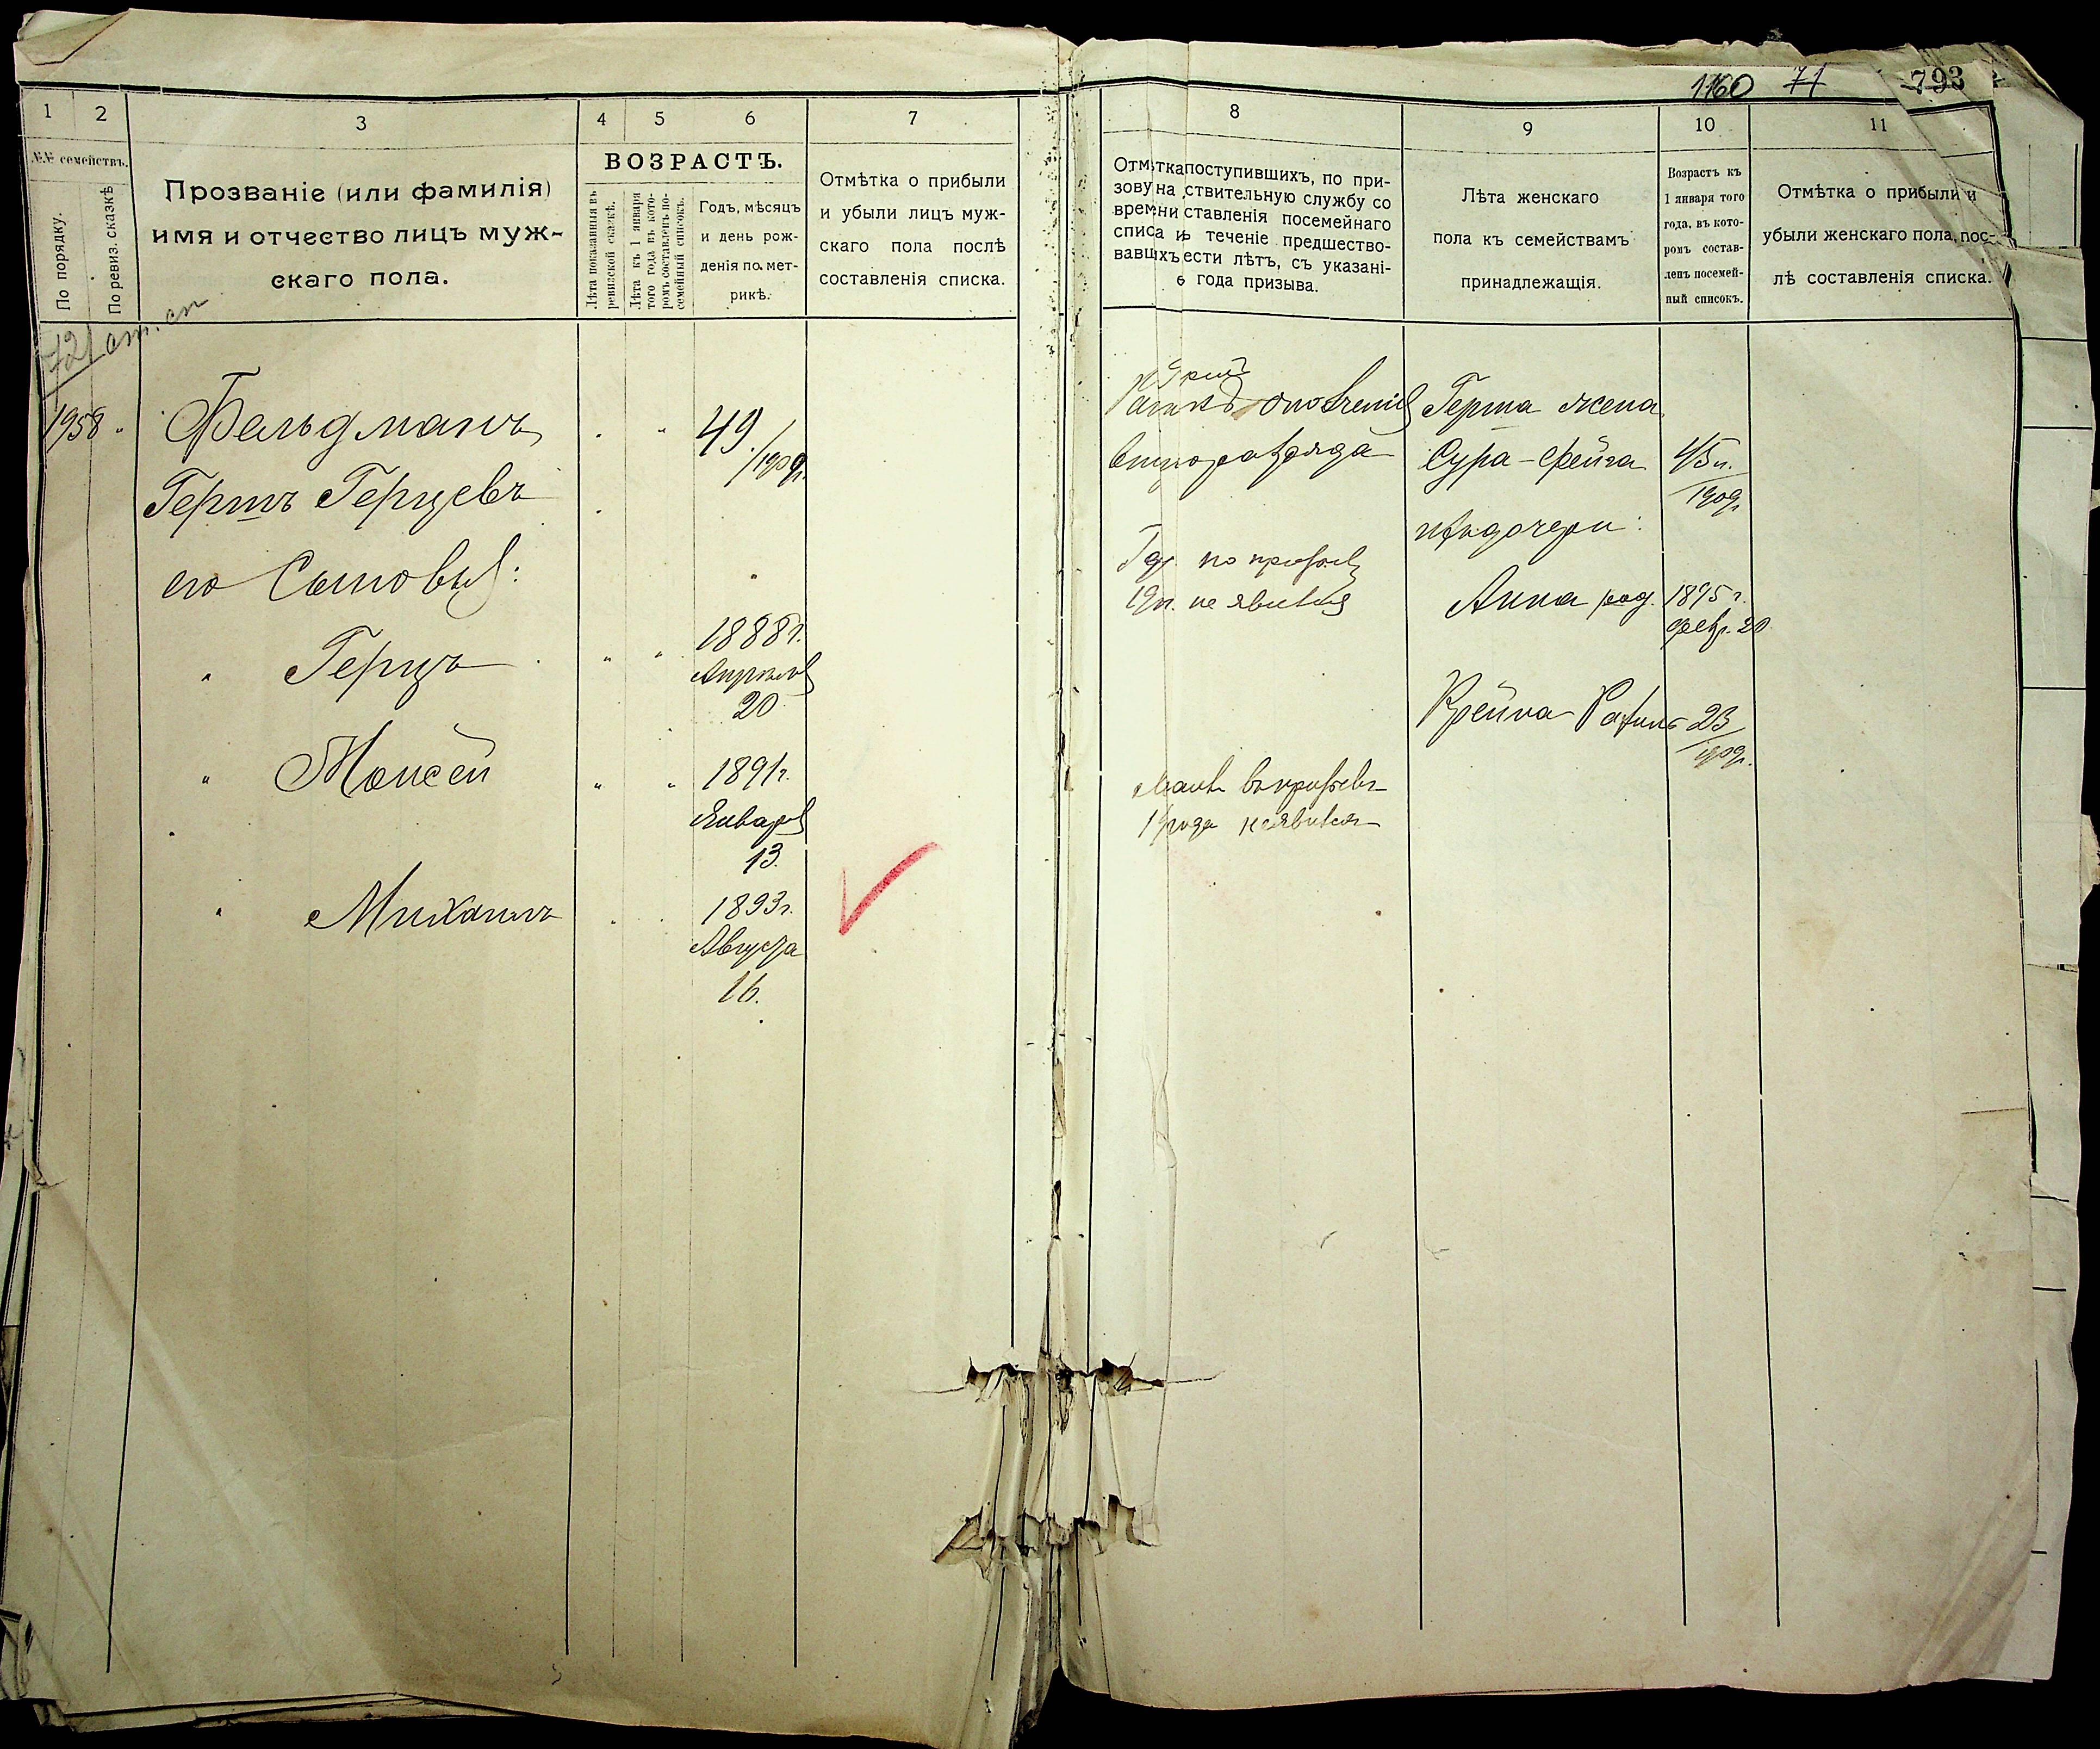 1160 71 793
1 2 3 4 5 6 7
№№ семействъ.
По порядку.
По ревиз. сказкѣ
Прозваніе (или фамилія)
имя и отчество лицъ муж-
скаго пола.
ВОЗРАСТЪ.
Лѣта показанныя въ
ревизской сказкѣ.
Лѣта къ 1 января
того года въ кото-
ромъ составленъ по-
семейный списокъ.
Годъ, мѣсяцъ
и день рож-
денія по мет-
рикѣ.
Отмѣтка о прибыли
и убыли лицъ муж-
скаго пола послѣ
составленія списка.
72 ст. сп
1958
Фельдманъ
49/1909г.
Гершъ Герцевъ
его Сыновья:
Герцъ
1888г.
Апрѣля
20
Моисей
1891г.
Января
13.
Михаилъ
1893г.
Августа
16.
8 9 10 11
Отмѣтка поступившихъ, по при-
зову на ствительную службу со
времени ставленія посемейнаго
списа и въ теченіе предшество-
вавшихъ ести лѣтъ, съ указані-
е года призыва.
Лѣта женскаго
пола къ семействамъ
принадлежащія.
Возрастъ къ
1 января того
года, въ кото-
ромъ состав-
ленъ посемей-
ный списокъ.
Отмѣтка о прибыли и
убыли женскаго пола, пос-
лѣ составленія списка.
ополченія
второго разряда
по призыву
не явился
въ призывѣ
года не явился
Герша жена
Сура-Фейга 45 л.
1909г.
ихъ дочери:
Анна род. 1895 г.
февр. 20
Крейна 23
1909г.